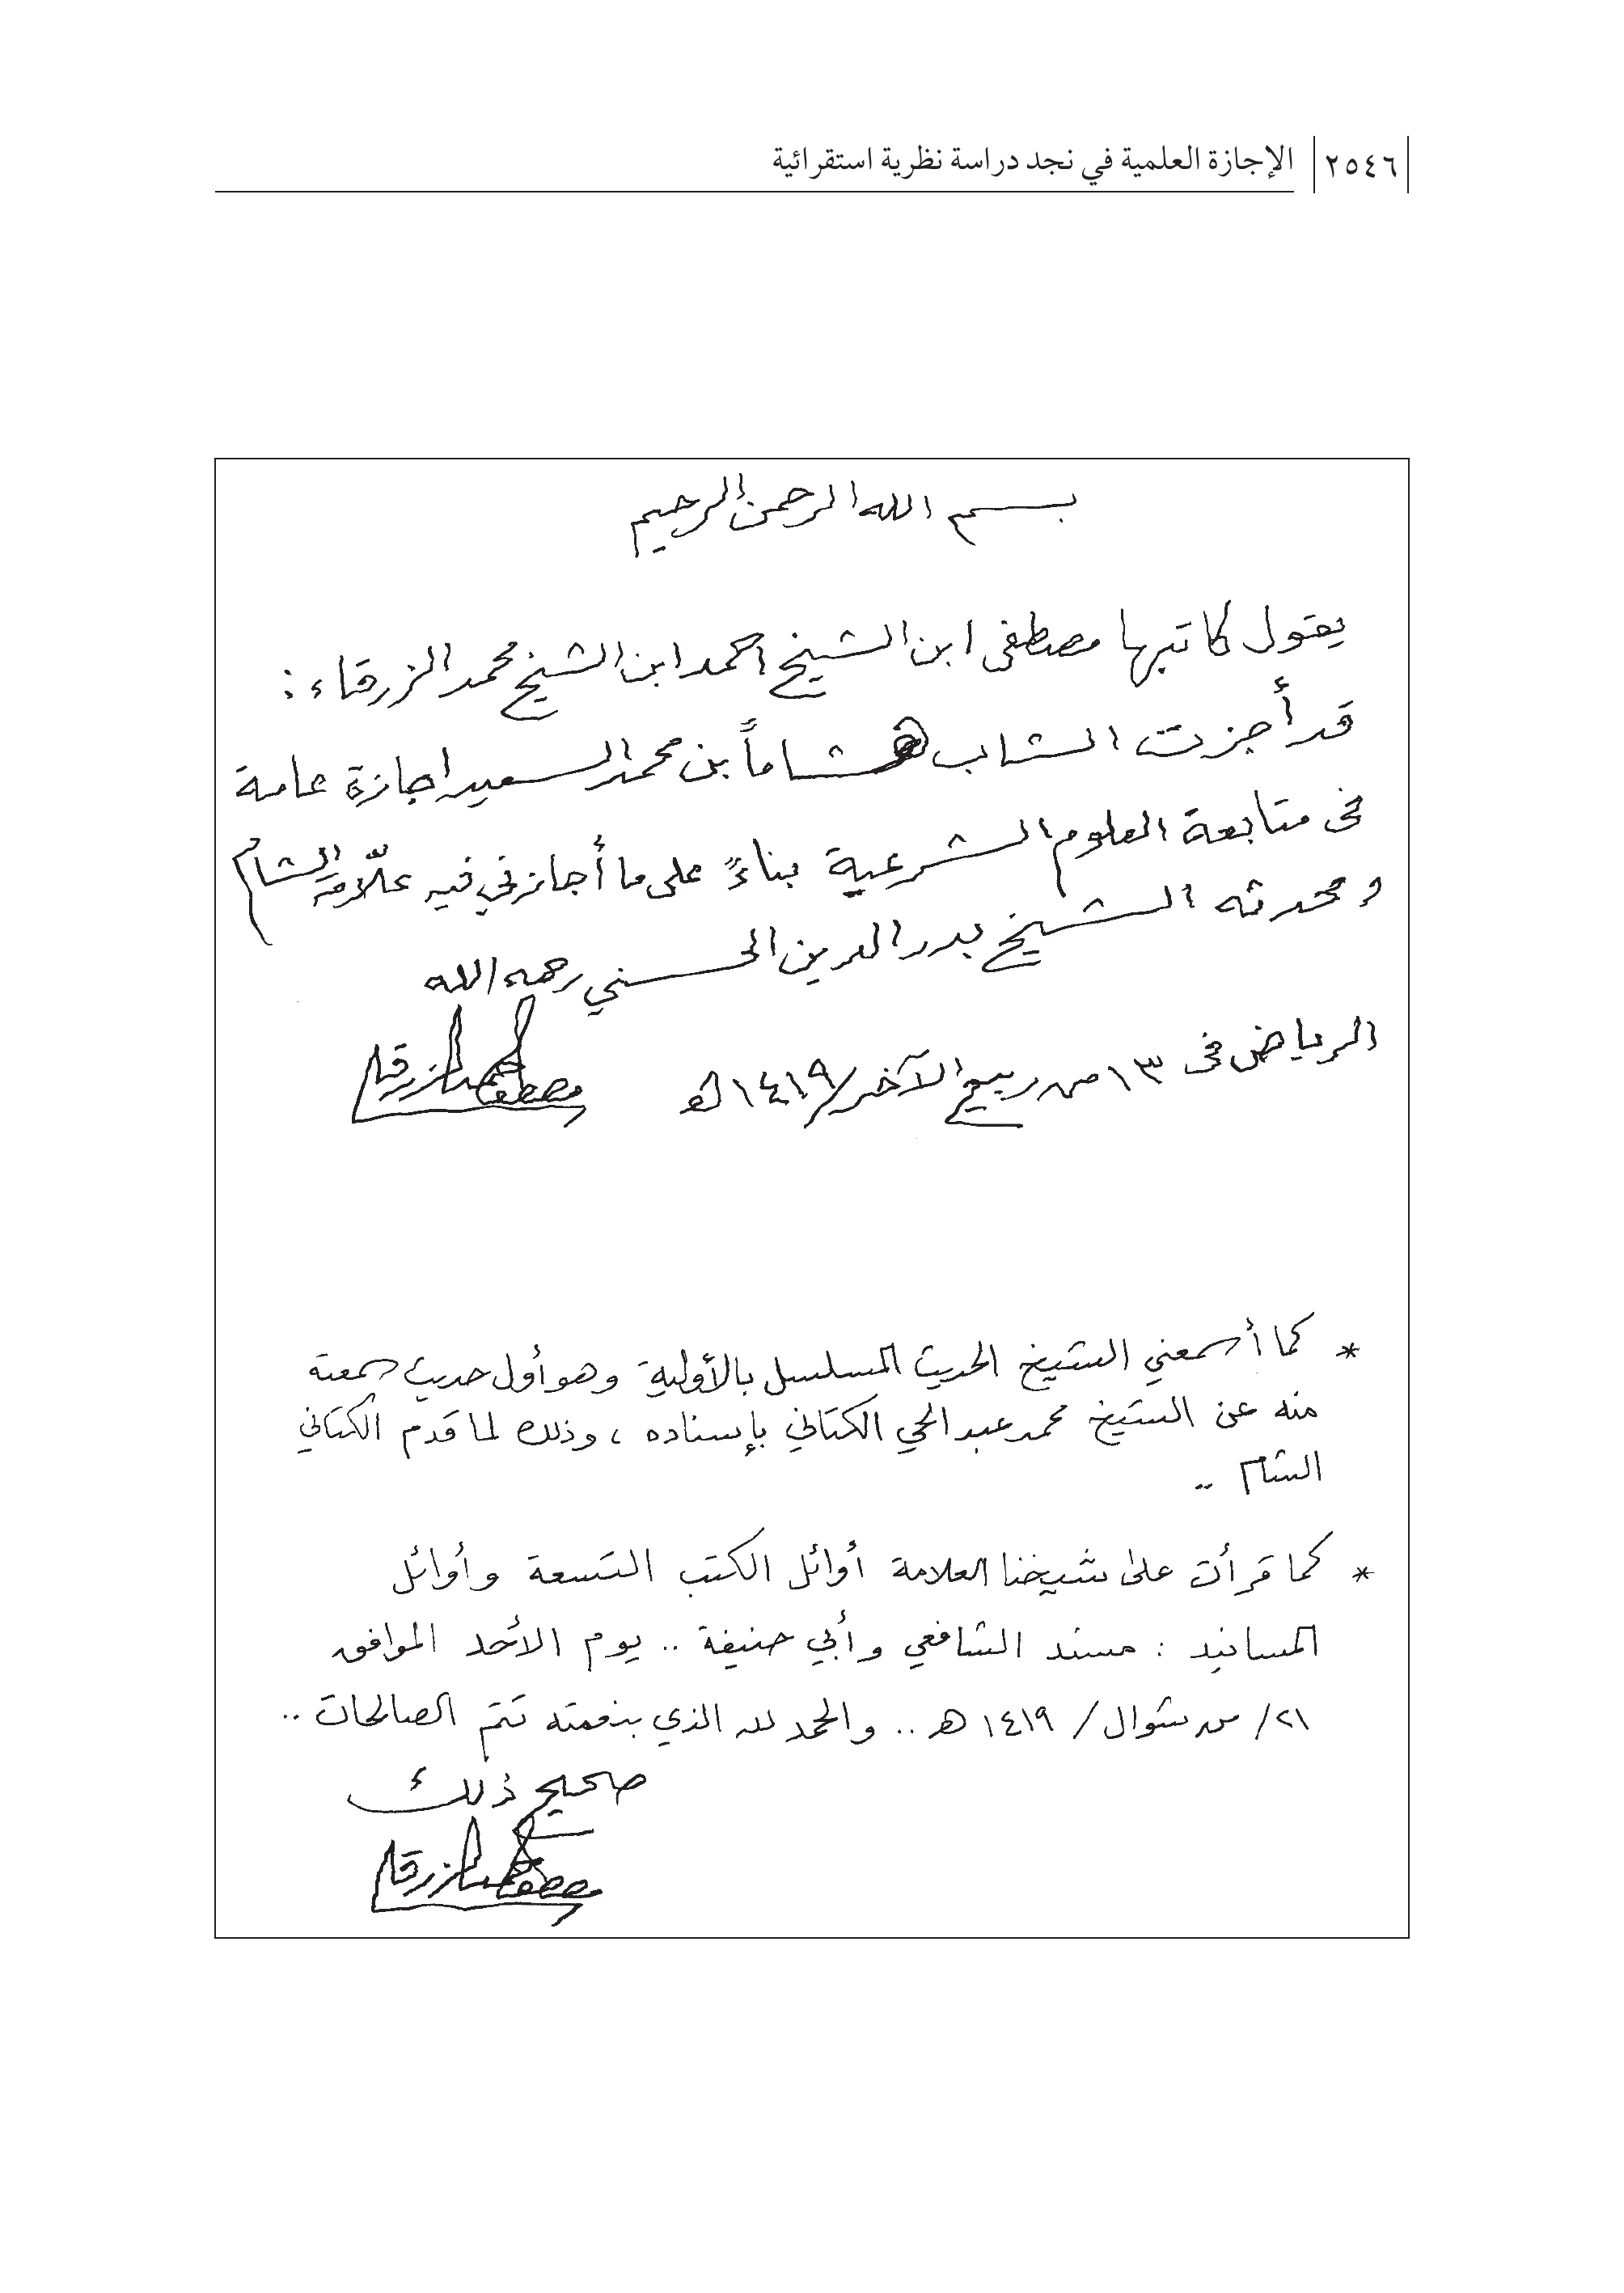 ٢٥٤٦ الإجازة العلمية في نجد دراسة نظرية استقرائية
بسم الله الرحمن الرحيم
يقول كاتبها مصطفى ابن الشيخ احمد ابن الشيخ محمد الزرقاء :
قد أجزت الشاب هشاماً بن محمد السعيد اجازة عامة
في متابعة العلوم الشرعية بناءً على ما أجازني فيه علّامة الشام
ومحدثه الشيخ بدر الدين الحسني رحمه الله
الرياض في ١٣ من ربيع الآخر/١٤١٩هـ
مصطفى احمد الزرقا
* كما أسمعني الشيخ الحديث المسلسل بالأولية وهو أول حديث سمعته
منه عن الشيخ محمد عبد الحي الكتاني بإسناده ، وذلك لما قدم الكتاني
الشام ..
* كما قرأت على شيخنا العلامة أوائل الكتب التسعة وأوائل
المسانيد : مسند الشافعي وأبي حنيفة .. يوم الأحد الموافق
٢١/ من شوال / ١٤١٩ هـ .. والحمد لله الذي بنعمته تتم الصالحات ..
صحيح ذلك
مصطفى احمد الزرقا